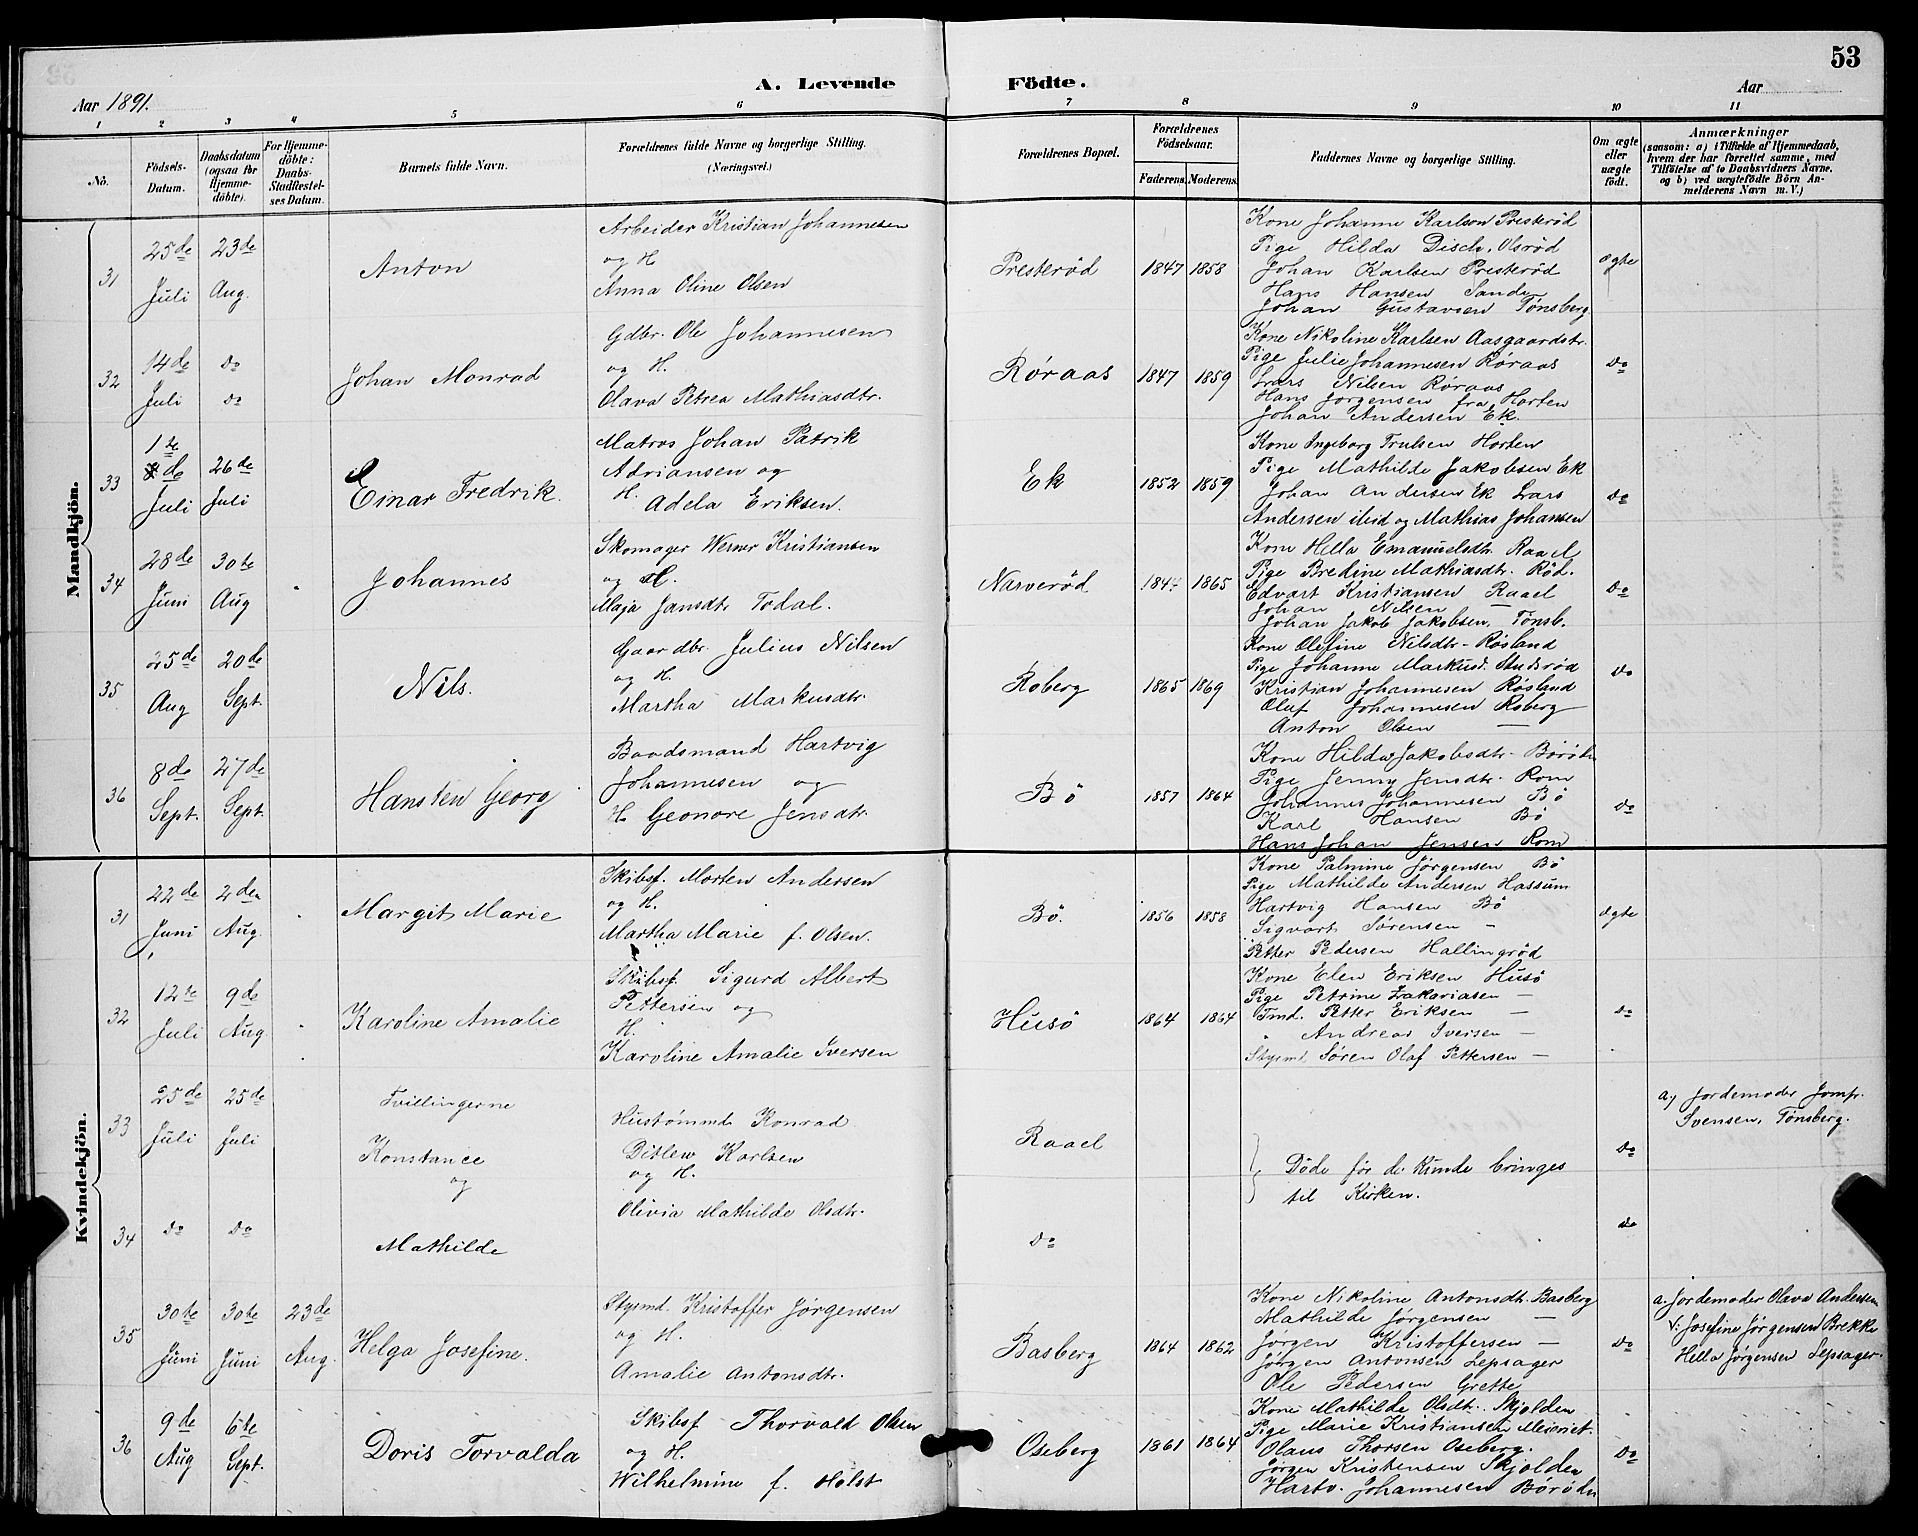 53
A. Levende Födte.
Aar 1891.
Aar
1 2 3 4 5 6 7 8 9 10 11
No.
Födsels-Datum.
Daabsdatum (ogsaa for Hjemme-döbte).
For Hjemme-döbte: Daabs-Stadfæstel-ses Datum.
Barnets fulde Navn.
Forældrenes fulde Navne og borgerlige Stilling. (Næringsvei.)
Forældrenes Bopæl.
Forældrenes Födselsaar.
Faderens. Moderens.
Faddernes Navne og borgerlige Stilling.
Om ægte eller uægte født.
Anmærkninger
(saasom: a) i Tilfælde af Hjemmedaab, hvem der har forrettet samme, med Tilföielse af to Daabsvidners Navne. og b) ved uægtefödte Börn An-melderens Navn m. V.)
Mandkjön.
31
25de Juli
23de Aug.
Anton
Arbeider Kristian Johannesen
og H
Anna Oline Olsen
Presterød
1847 1858
Kone Johanne Karlson Presterød
Pige Hilda Disch, Olsrød
Johan Karlsen Presterød
Hans Hansen Sande
Johan Gustavsen Tønsberg
Ægte
32
14de Juli
do do
Johan Monrad
Gdbr. Ole Johannesen
og H.
Olava Petrea Mathiasdtr.
Røraas
1847 1859
Kone Nikoline Karlsen Aasgaardstr.
Pige Julie Johannesen Røraas
Lars Nilsen Røraas
Hans Jørgensen fra Horten
Johan Andersen Ek.
do
33
1te
de Juli
26de Juli
Einar Fredrik.
Matros Johan Patrik
Adriansen og
H. Adela Eriksen.
Ek
1852 1859
Kone Ingeborg Trulsen Horten
Pige Mathilde Jakobsen Ek
Johan Andersen Ek Lars
Andersen ibid og Mathias Johansen
do
34
28de Juni
30te Aug
Johannes
Skomager Werner Kristiansen
og H.
Maja Jansdtr Todal.
Narverød
184 1865
Kone Hella Emanuelsdtr. Raael
Pige Bredine Mathiasdtr. Röd.
Edvart Kristiansen Raael
Johan Nilsen —
Johan Jakob Jakobsen, Tönsb.
do
35
25de Aug
20de Sept.
Nils.
Gaardbr. Julius Nilsen
og H.
Martha Markusdtr.
Roberg
1865 1869
Kone Olefine Nilsdtr. Røsland
Pige Johanne Markusd.
Kristian Johannesen Røsland
Oluf Johannesen Roberg
Anton Olsen —
do
36
8de Sept.
27de Sept.
Hansten Georg
Baadsmand Hartvig
Johannesen og
H. Geonore Jensdtr.
Bö
1857 1864
Kone Hilda Jakobsdtr. Börö
Pige Jenny Jensdtr. Rom
Johannes Johannesen Bö
Karl Hansen Bö
Hans Johan Jensen Rom
do
Kvindekjön.
31
22de Juni
2den Aug.
Margit Marie
Skibsf. Morten Andersen
og H.
Martha Marie f. Olsen.
Bö.
1856 1858
Kone Palmine Jørgensen Bö
Pige Mathilde Andersen Hassum
Hartvig Hansen Bö
Sigvart Sørensen -
Petter Pedersen Hallingrød
Ægte
32
12te Juli
9de Aug.
Karoline Amalie
Skibsf. Sigurd Albert
Pettersen og
H.
Karoline Amalie Iversen
Husö
1864 1864
Kone Elen Eriksen Husö
Pige Petrine Zakariasen —
Tmd. Petter Eriksen —
" Andreas Iversen —
Stysmd. Sören Olaf Pettersen —
do
33
25de Juli
25de Juli
Tvillingerne
Konstance
og
Hustømmd. Konrad
Ditlew Karlsen
og H.
Olivia Mathilde Olsdtr.
Raael
Döde før de kunde bringes
til Kirken.
do
a) Jordemoder Jomfr.
Svensen, Tönsberg.
34
do
do
Mathilde
do
do
35
30te Juni
30te Juni
23de Aug.
Helga Josefine.
Stysmd. Kristoffer Jørgensen
og H.
Amalie Antonsdtr.
Basberg
1864 1862
Kone Nikoline Antonsdtr. Basberg
Mathilde Jørgensen —
Jørgen Kristoffersen —
Jørgen Antonsen Lepsager
Ole Pedersen Grette
do
a. Jordemoder Olava Andersen
v: Josefine Jørgensen Brekke
Hella Jørgensen Lepsager.
36
9de Aug
6te Sept.
Doris Torvalda
Skibsf Thorvald Olsen
og H.
Wilhelmine f. Holst
Oseberg
1861 1864
Kone Mathilde Olsdtr. Skjolden
Pige Marie Kristiansen Meieriet.
Olaus Thorsen Oseberg.
Jørgen Kristensen Skjolden
Hartv. Johannesen Börö
do